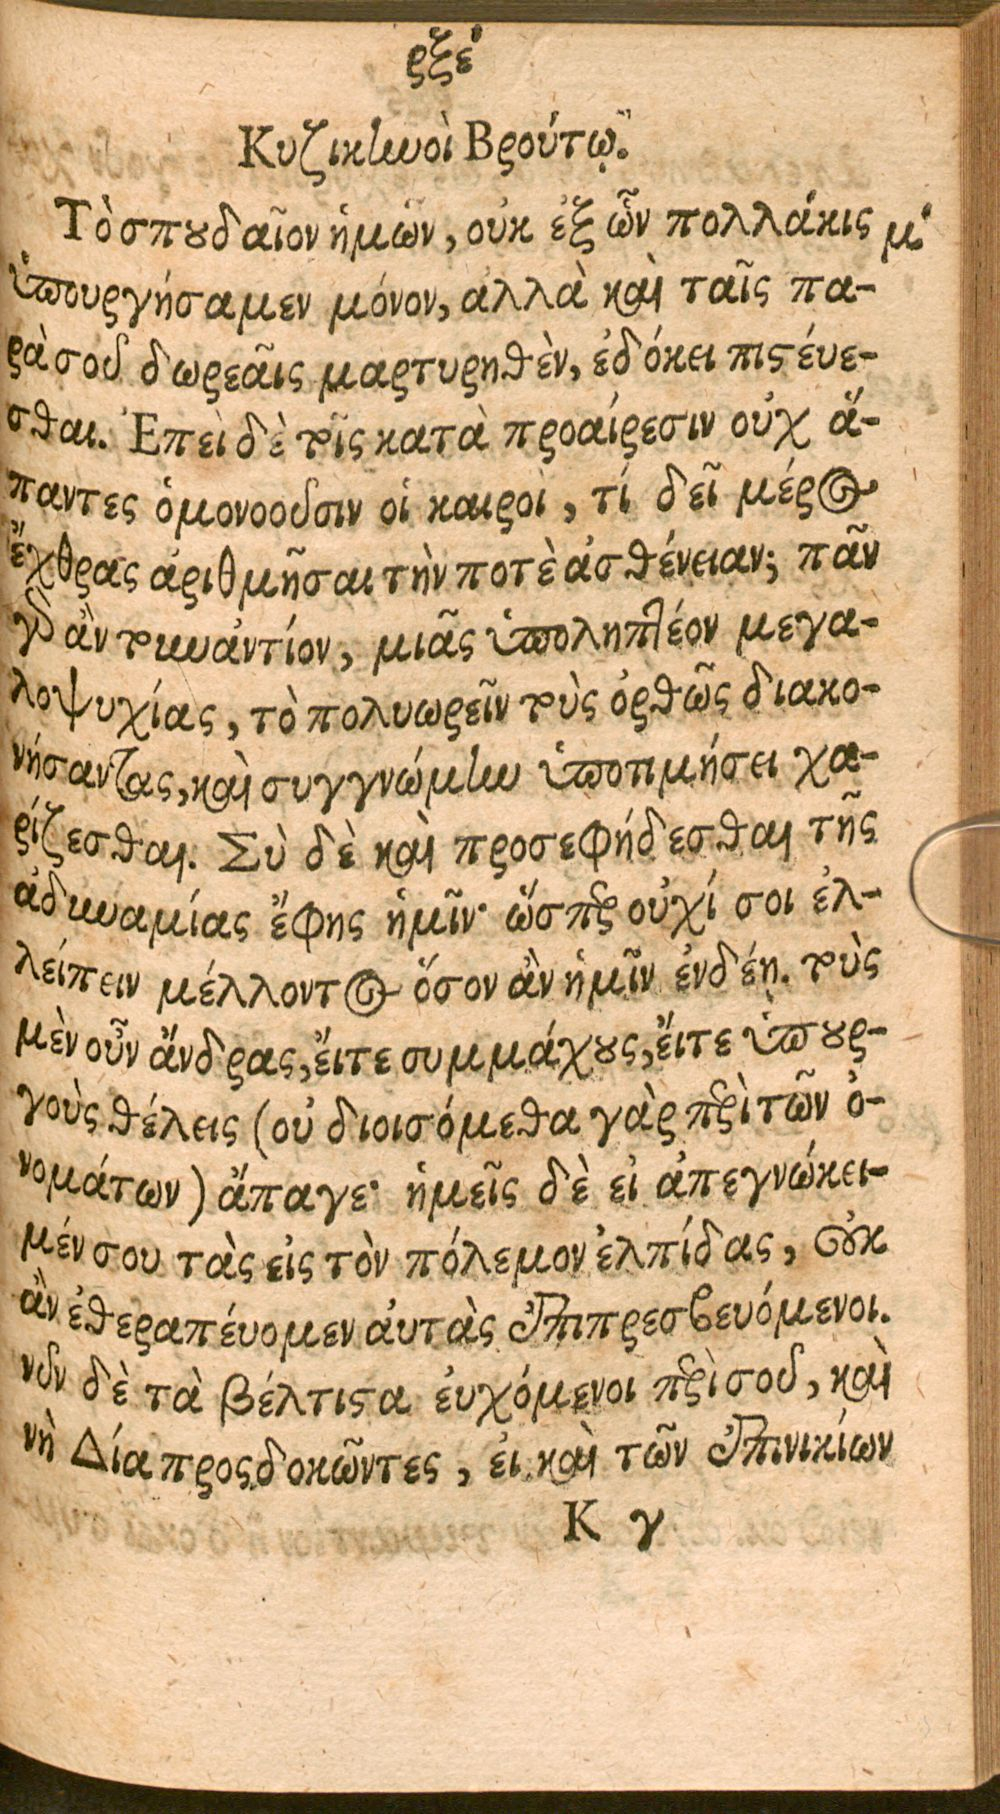 ρξε´
Κυζικηνοὶ Βρούτῳ.
Τὸ σπουδαῖον ἡμῶν, οὐκ ἐξ ὧν πολλάκις μ´
ὑπουργήσαμεν μόνον, ἀλλὰ καὶ ταῖς πα-
ρὰ σοῦ δωρεαῖς μαρτυρηθὲν, ἐδόκει πιστέυε-
σθαι. Ἐπεὶ δὲ τοῖς κατὰ προαίρεσιν οὐχ ἅ-
παντες ὁμονοοῦσιν οἱ καιροὶ, τί δεῖ μέρος
ἔχθρας ἀριθμῆσαι τὴν ποτὲ ἀσθένειαν; πᾶν
γὰρ ἂν τοὐναντίον, μιᾶς ὑποληπτέον μεγα-
λοψυχίας, τὸ πολυωρεῖν τοὺς ὀρθῶς διακο-
νήσαντας, καὶ συγγνώμην ὑποτιμήσει χα-
ρίζεσθαι. Σὺ δὲ καὶ προσεφήδεσθαι τῆς
ἀδυναμίας ἔφης ἡμῖν· ὥσπερ οὐχί σοι ἐλ-
λείπειν μέλλοντος ὅσον ἂν ἡμῖν ἐνδέῃ. τοὺς
μὲν οὖν ἄνδρας, ἔιτε συμμάχους, ἔιτε ὑπουρ-
γοὺς θέλεις (οὐ διοισόμεθα γὰρ περὶ τῶν ὀ-
νομάτων) ἄπαγε· ἡμεῖς δὲ εἰ ἀπεγνώκει-
μέν σου τὰς εἰς τὸν πόλεμον ἐλπίδας, οὐκ
ἂν ἐθεραπέυομεν ἀυτὰς ἐπιπρεσβευόμενοι.
νῦν δὲ τὰ βέλτιστα ἐυχόμενοι περὶ σοῦ, καὶ
νὴ Δία προςδοκῶντες, ἐι καὶ τῶν ἐπινικίων
Κ γ